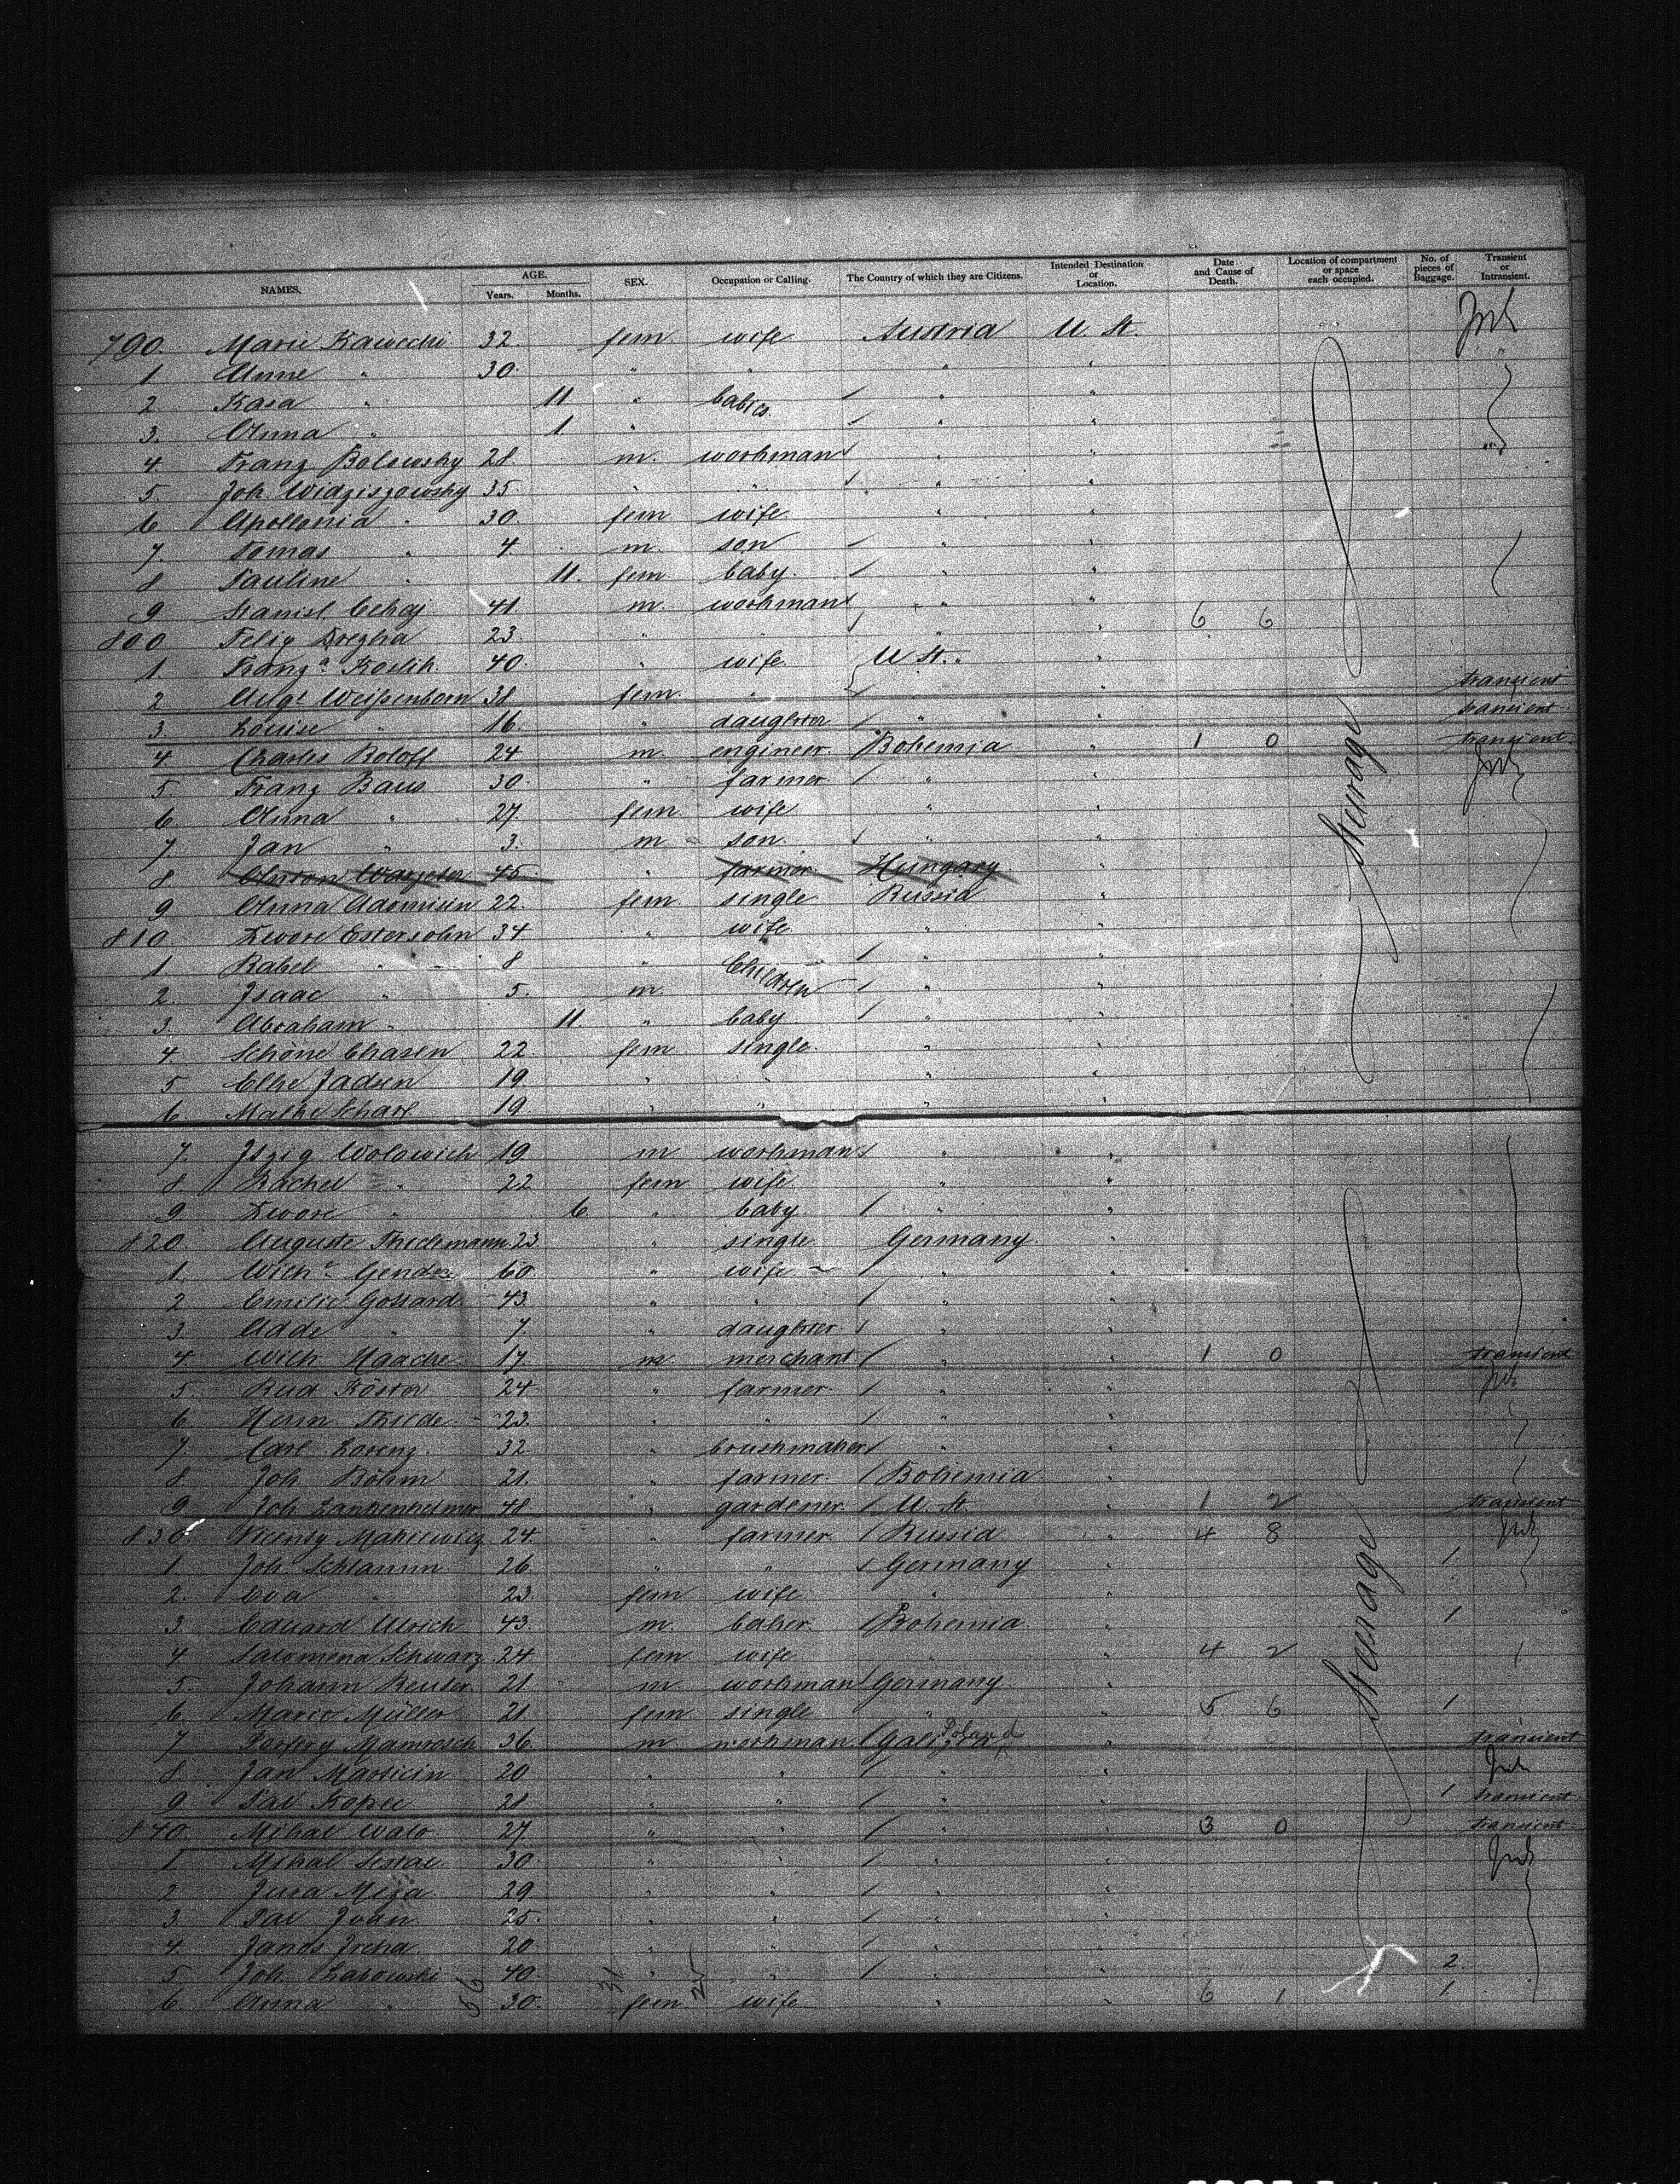 NAMES. AGE. Years. Months. SEX. Occupation or Calling. The Country of which they are Citizens. Intended Destination or Location. Date and Cause of Death. Location of compartment or space each occupied. No. of pieces of Baggage. Transient or Intransient.
790. Marie 32 fem wife Austria U. St.
1 Anne " 30 " " " "
2 Kasa " 11 " babies " "
3. Anna " 1 " " "
4. Franz Bolewsky 28 m. workman " "
5. Joh. Widziszowsky 35 " " " "
6 Apollonia " 30 fem wife " "
7. Tomas " 4 m. son " "
8 Pauline " 11. fem baby " "
9 Stanisl. 41 m. workman " " 6 6
800 Felix 23 " " " "
1. Franz.a Koslik 40 " wife U St. "
2 Aug.t Weißenborn 38 fem " " transient
3. Louise " 16 " daughter " " transient
4. Charles Roloff 24 m. engineer Bohemia " 1 0 transient
5 Franz Baus 30 " farmer " "
6. Anna " 27. fem wife " "
7. Jan " 3. m son " "
8. Anton 45 " farmer Hungary "
9 Anna 22. fem single Russia "
810. Dwore Estersohn 34 " wife " "
1. Rahel " 8 " Children " "
2. Isaac " 5. m. " "
3. Abraham " 11. " baby " "
4. Schöne Chasen 22. fem single. " "
5 Elke Jadsen 19. " " " "
6. Malke Scharf 19. " " " "
7. Itzig Wolowich 19 m workman " "
8. Rachel " 22 fem wife " "
9. Dwore " 6 " baby " "
820. Auguste Thiedemann 23 " single Germany "
1. Wilh.e 60 " wife " "
2 Emilie Gossard 43 " " " "
3. Adde " 7. " daughter " "
4. Wilh. Haacke 17. m merchant " " 1 0 transient
5. Rud Köster 24 " farmer " "
6. Herm. Thilde 23. " " " "
7 Carl Lorenz 32 " brushmaker " "
8 Joh Böhm 21. " farmer Bohemia "
9. Joh. Lankenheimer 48 " gardener U. St. " 1 2 transient
830. Vicenty Makiewicz 24. " farmer Russia " 4 8
1 Joh. Schlamm 26. " " Germany " 1
2. Eva " 23 fem wife " "
3. Eduard Ulrich 43. m. baker Bohemia " 1
4 Salomena Schwarz 24 fem wife " " 4 2
5. Johann Reuter 21. m. workman Germany "
6 Marie Müller 21 fem single " " 5 6 1
7 Mamrosch 36 m workman Galizia Poland " transient
8. Jan Marsicin 20 " " " "
9 Pal Kopec 21 " " " " 1 transient
840. Mihal Walo 27 " " " " 3 0 transient
1 Mihal 30 " " " "
2 Jura Miza 29 " " " "
3. Pal Ivan 25. " " " "
4. Janos Ircha 20 " " " "
5. Joh. Labowski 40. " " " " 2
6. Anna " 30. fem. wife " " 6 1 1
Steerage
Steerage
56 31 25